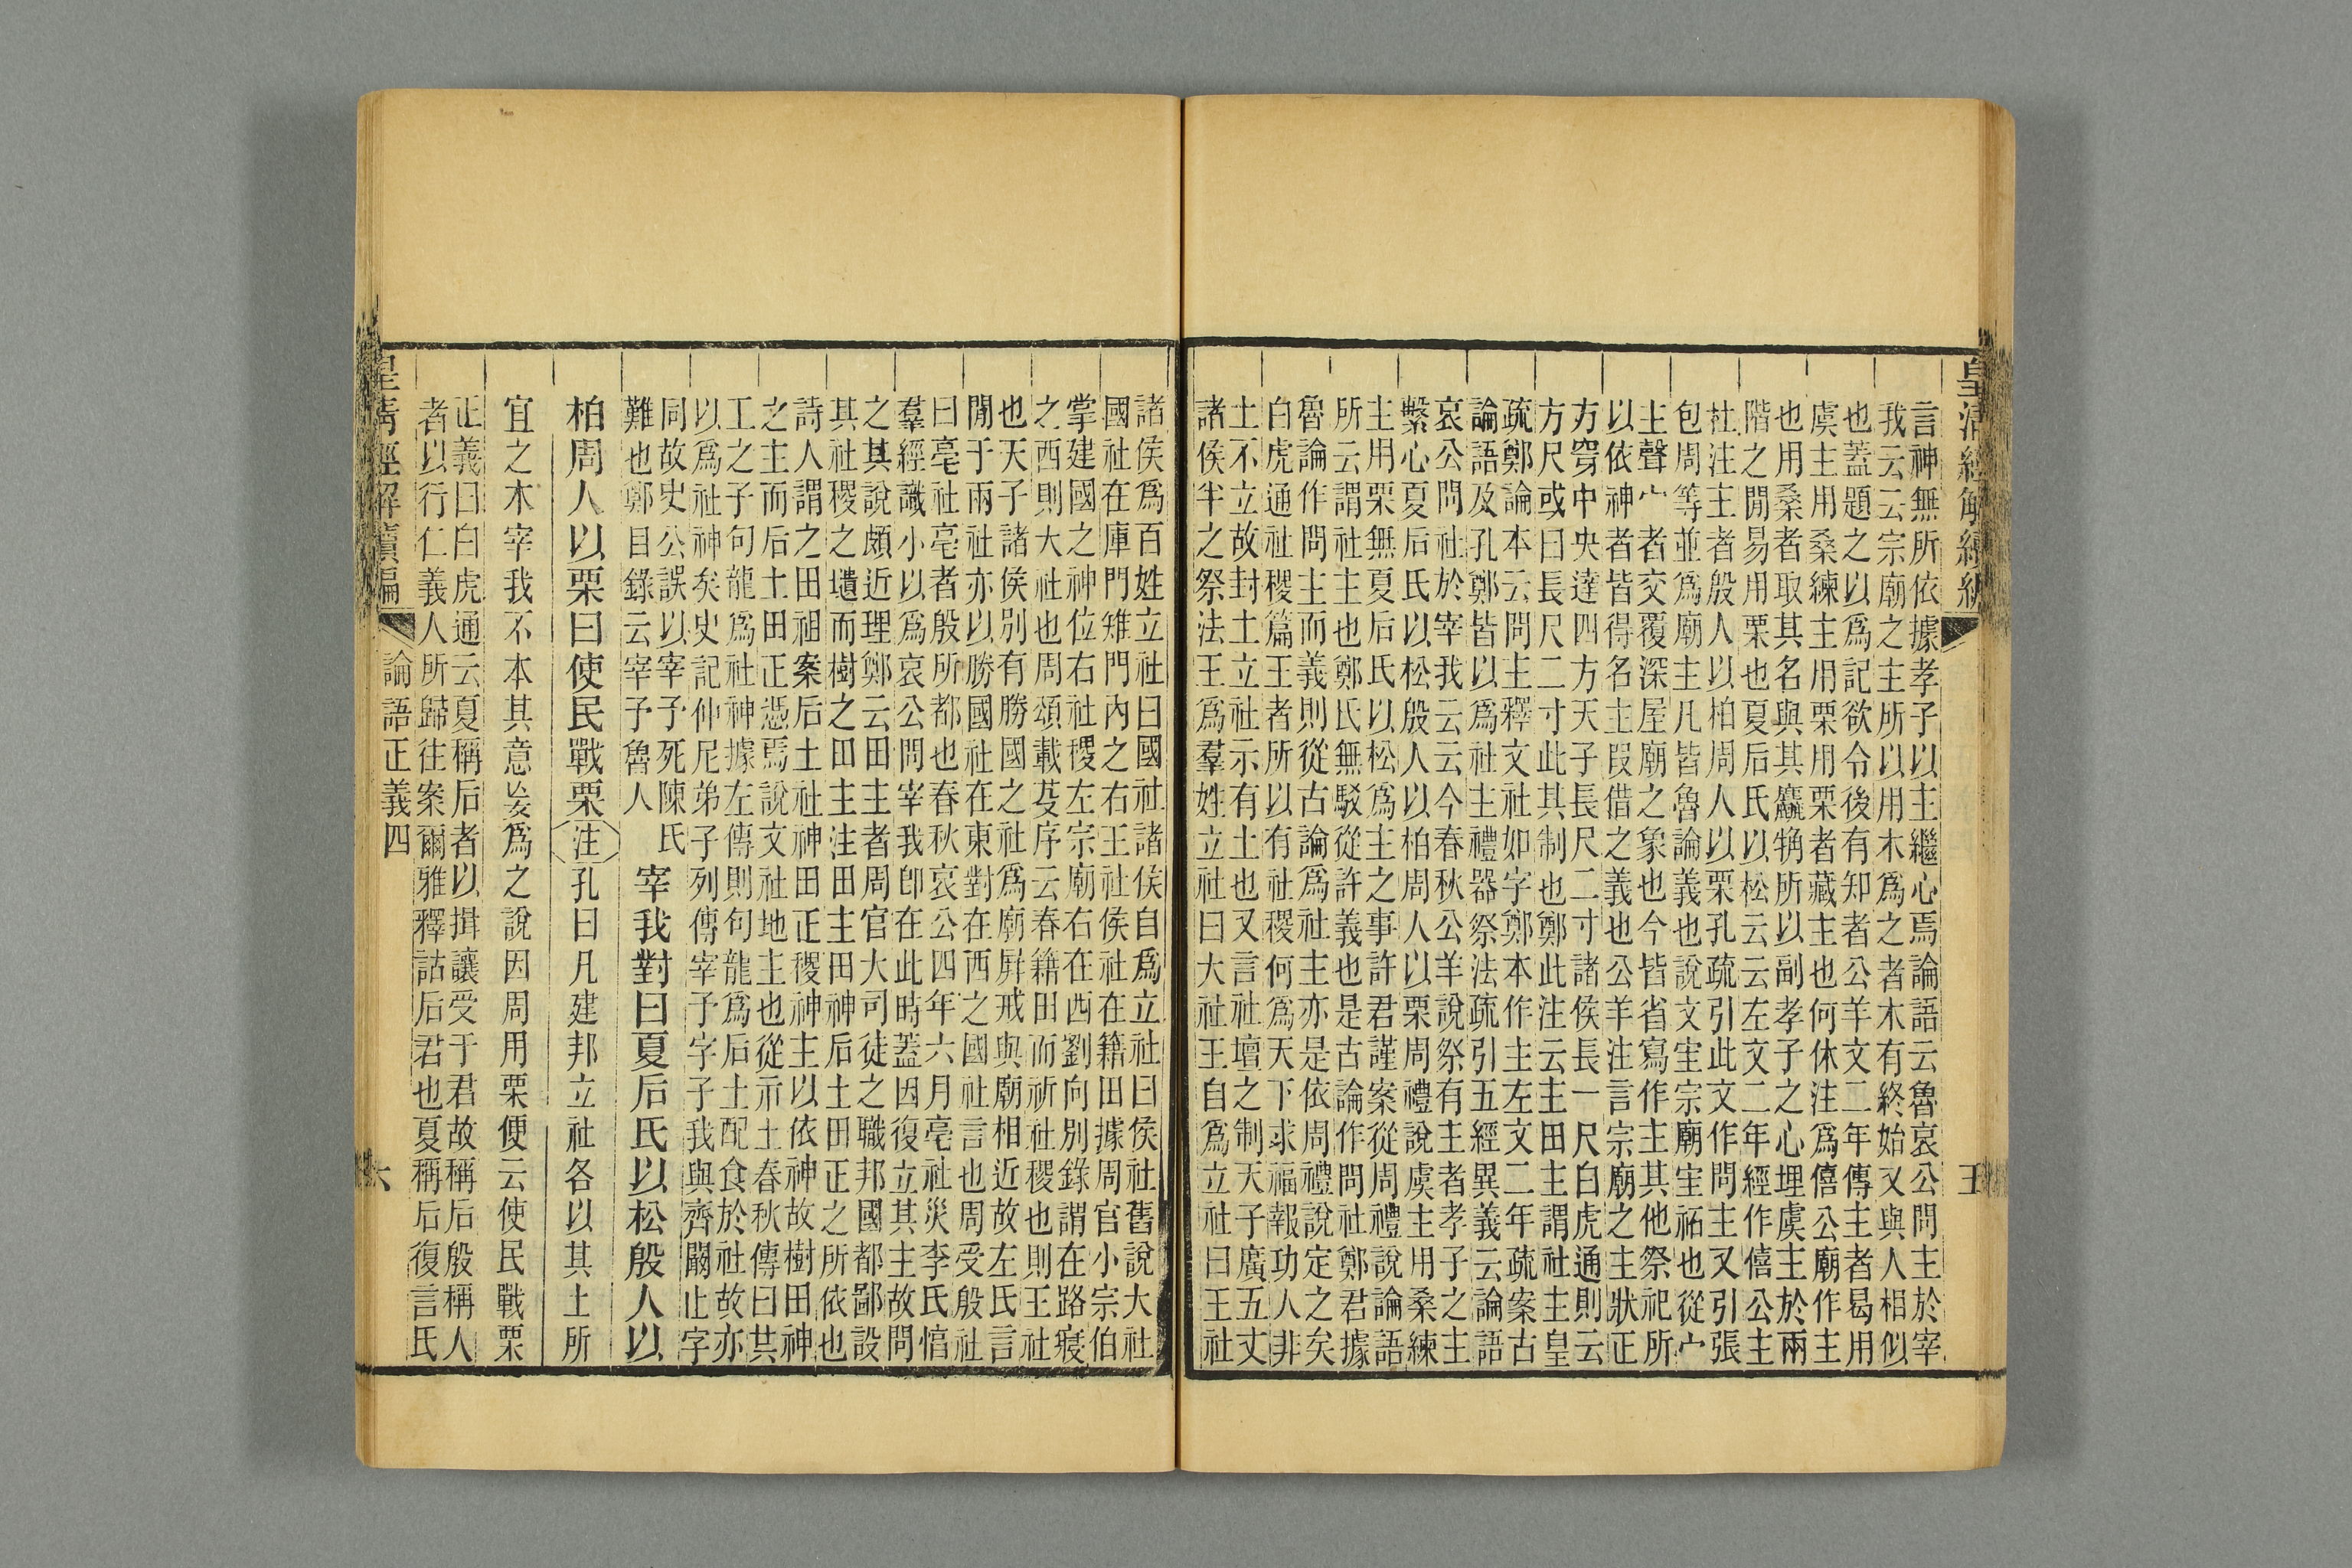 皇清經解續編
五
言神無所依據孝子以主繼心焉論語云魯哀公問主於宰
我云云宗廟之主所以用木爲之者木有終始又與人相似
也蓋題之以爲記欲令後有知者公羊文二年傳主者曷用
虞主用桑練主用栗用栗者藏主也何休注爲僖公廟作主
也用桑者取其名與其麤觕所以副孝子之心埋虞主於兩
階之閒易用栗也夏后氏以松云云左文二年經作僖公主
杜注主者殷人以柏周人以栗孔疏引此文作問主又引張
包周等並爲廟主凡皆魯論義也說文宔宗廟宔祏也從宀
主聲宀者交覆深屋廟之象也今皆省寫作主其他祭祀所
以依神者皆得名主叚借之義也公羊注言宗廟之主狀正
方穿中央達四方天子長尺二寸諸侯長一尺白虎通則云
方尺或曰長尺二寸此其制也鄭此注云主田主謂社主皇
疏鄭論本云問主釋文社如字鄭本作主左文二年疏案古
論語及孔鄭皆以爲社主禮器祭法疏引五經異義云論語
哀公問社於宰我云云今春秋公羊說祭有主者孝子之主
繫心夏后氏以松殷人以柏周人以栗周禮說虞主用桑練
主用栗無夏后氏以松爲主之事許君謹案從周禮說論語
所云謂社主也鄭氏無駁從許義也是古論作問社鄭君據
魯論作問主而義則從古論爲社主亦是依周禮說定之矣
白虎通社稷篇王者所以有社稷何爲天下求福報功人非
土不立故封土立社示有土也又言社壇之制天子廣五丈
諸侯半之祭法王爲羣姓立社曰大社王自爲立社曰王社
諸侯爲百姓立社曰國社諸侯自爲立社曰侯社舊說大社
國社在庫門雉門內之右王社侯社在籍田據周官小宗伯
掌建國之神位右社稷左宗廟右在西劉向別錄謂在路寢
之西則大社也周頌載芟序云春籍田而祈社稷也則王社
也天子諸侯別有勝國之社爲廟屛戒與廟相近故左氏言
閒于兩社亦以勝國社在東對在西之國社言也周受殷社
曰亳社亳者殷所都也春秋哀公四年六月亳社災李氏惇
羣經識小以爲哀公問宰我卽在此時蓋因復立其主故問
之其說頗近理鄭云田主者周官大司徒之職邦國都鄙設
其社稷之壝而樹之田主注田主田神后土田正之所依也
詩人謂之田祖案后土社神田正稷神主以依神故樹田神
之主而后土田正憑焉說文社地主也從示土春秋傳曰共
工之子句龍爲社神據左傳則句龍爲后土配食於社故亦
以爲社神矣史記仲尼弟子列傳宰予字子我與齊闞止字
同故史公誤以宰予死陳氏
難也鄭目錄云宰予魯人
宰我對曰夏后氏以松殷人以
柏周人以栗曰使民戰栗注孔曰凡建邦立社各以其土所
宜之木宰我不本其意妄爲之說因周用栗便云使民戰栗
正義曰白虎通云夏稱后者以揖讓受于君故稱后殷稱人
者以行仁義人所歸往案爾雅釋詁后君也夏稱后復言氏
皇淸經解續編
論語正義四
六